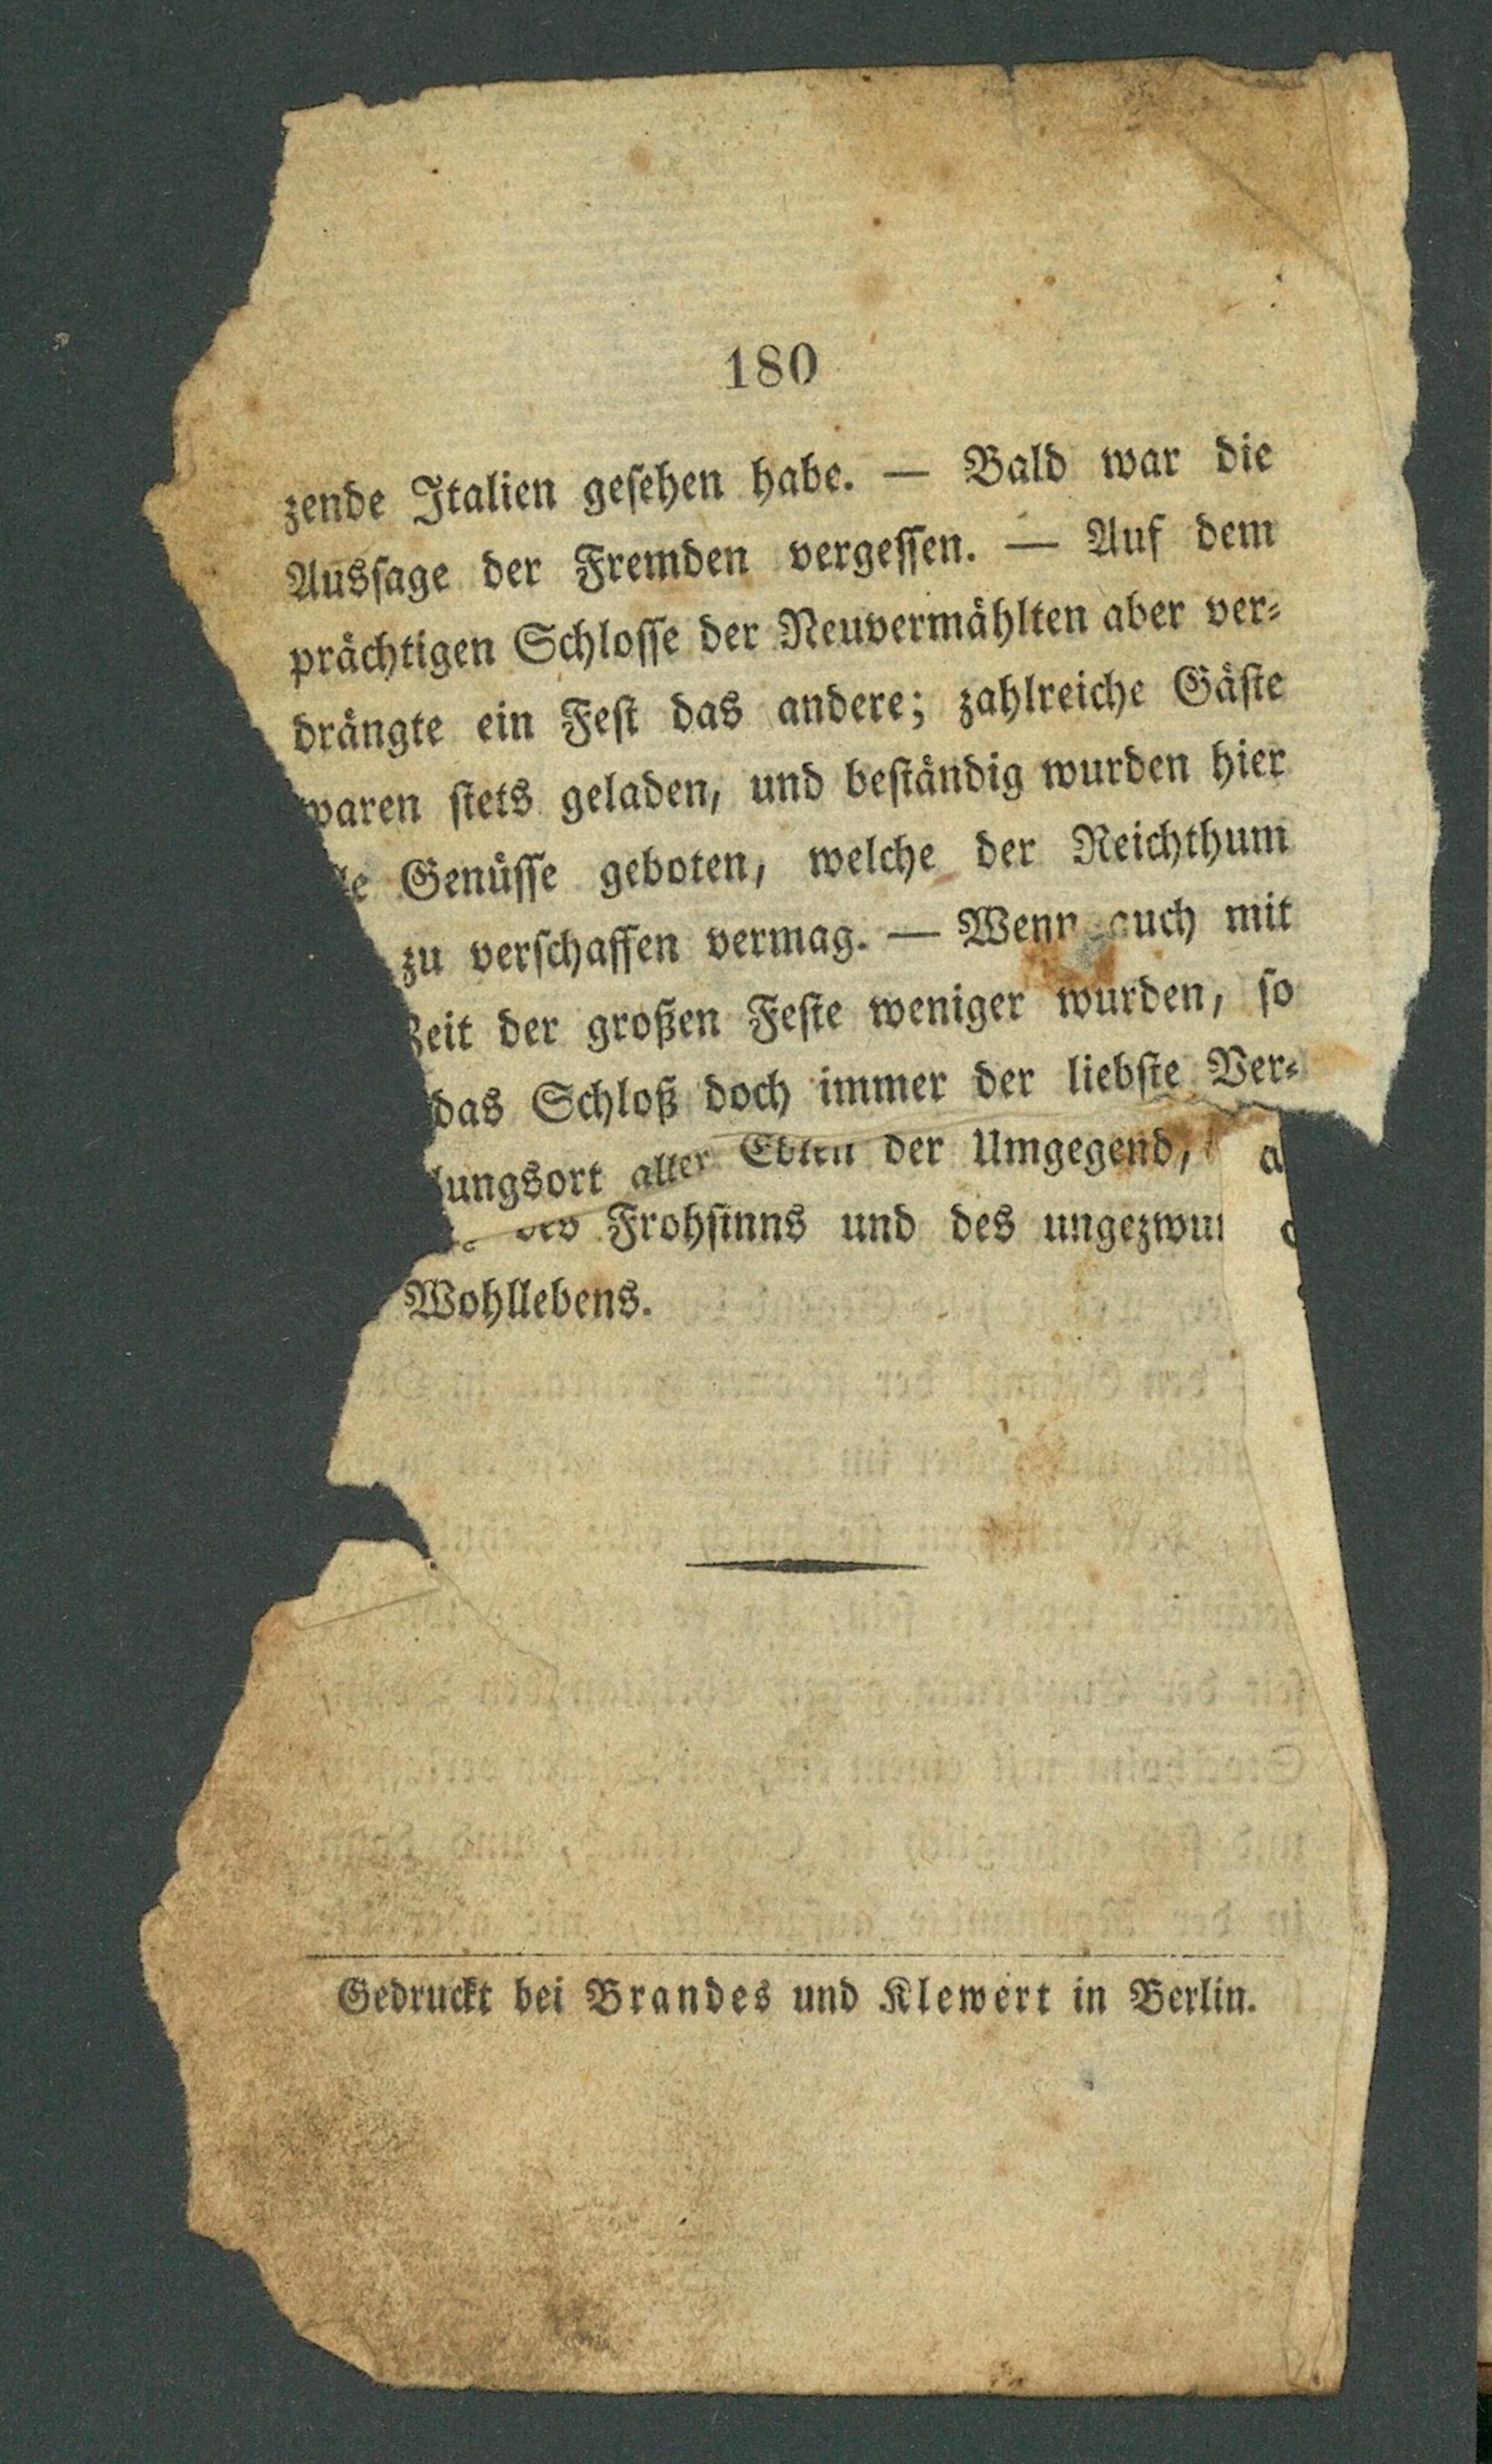 180
zende Italien geſehen habe. — Bald war die
Ausſage der Fremden vergeſſen. — Auf dem
prächtigen Schloſſe der Neuvermählten aber ver⸗
drängte ein Feſt das andere; zahlreiche Gäſte
waren ſtets geladen, und beſtändig wurden hier
le Genüſſe geboten, welche der Reichthum
zu verſchaffen vermag. — Wenn auch mit
Zeit der großen Feſte weniger wurden, ſo
das Schloß doch immer der liebſte Ver⸗
lungsort aller Edlen der Umgegend,
des Frohſinns und des ungezwun
Wohllebens.
Gedruckt bei Brandes und Klewert in Berlin.